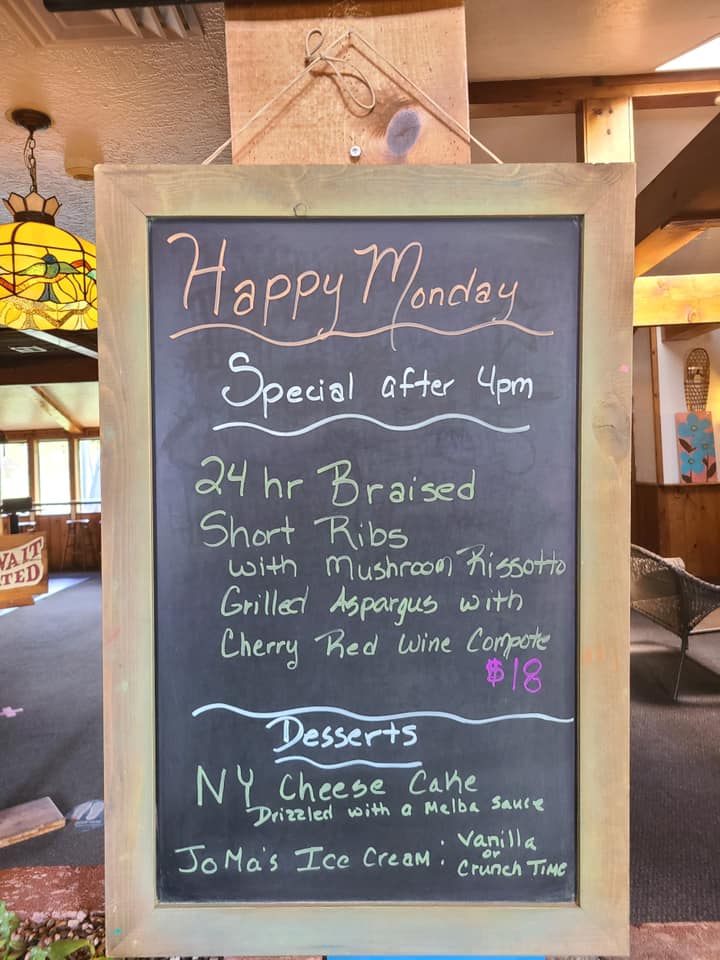 Happy Monday
Special after 4pm
24 hr Braised
Short Ribs
with Mushroom Rissotto
Grilled Aspargus with
Cherry Red Wine Compote
$18
Desserts
NY Cheese Cake
Drizzled with a Melba Sauce
JoMa's Ice Cream: Vanilla
or
Crunch Time
WAIT
TED